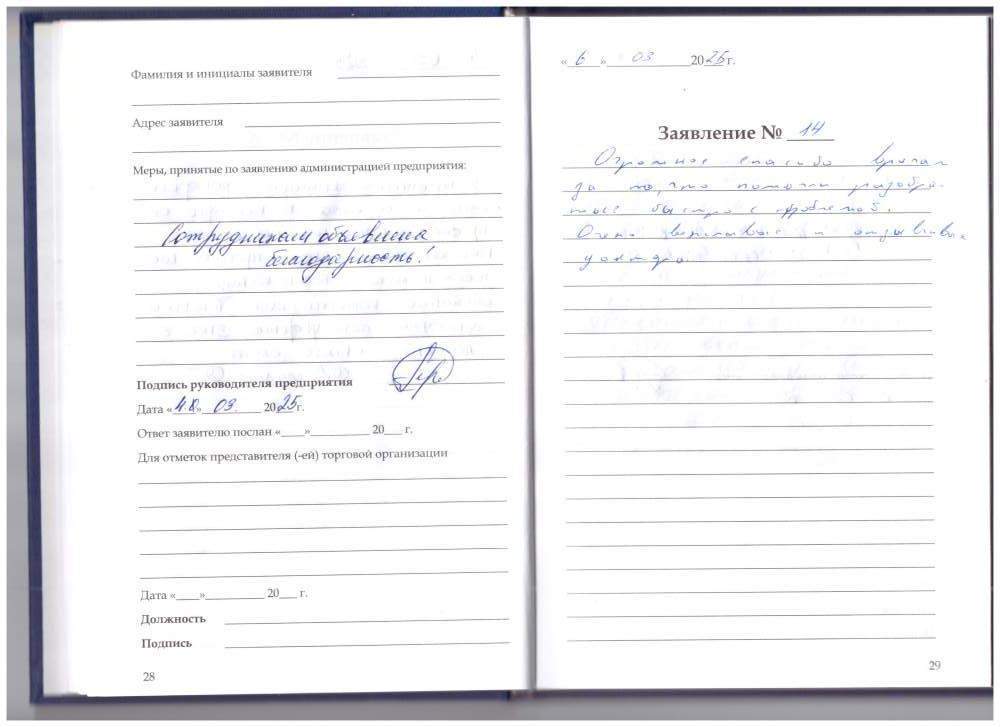 Фамилия и инициалы заявителя
Адрес заявителя
Меры, принятые по заявлению администрацией предприятия:
Сотрудникам объявлена
благодарность!
Подпись руководителя предприятия
Дата «10» 03. 2025г.
Ответ заявителю послан «____»__________ 20___ г.
Для отметок представителя (-ей) торговой организации
Дата «____»__________ 20___ г.
Должность
Подпись
28
«6» 03 2025г.
Заявление № 14
Огромное спасибо врачам
за то, что помогли разобра-
ться быстро с проблемой.
Очень вежливые и отзывчивые
доктора.
29